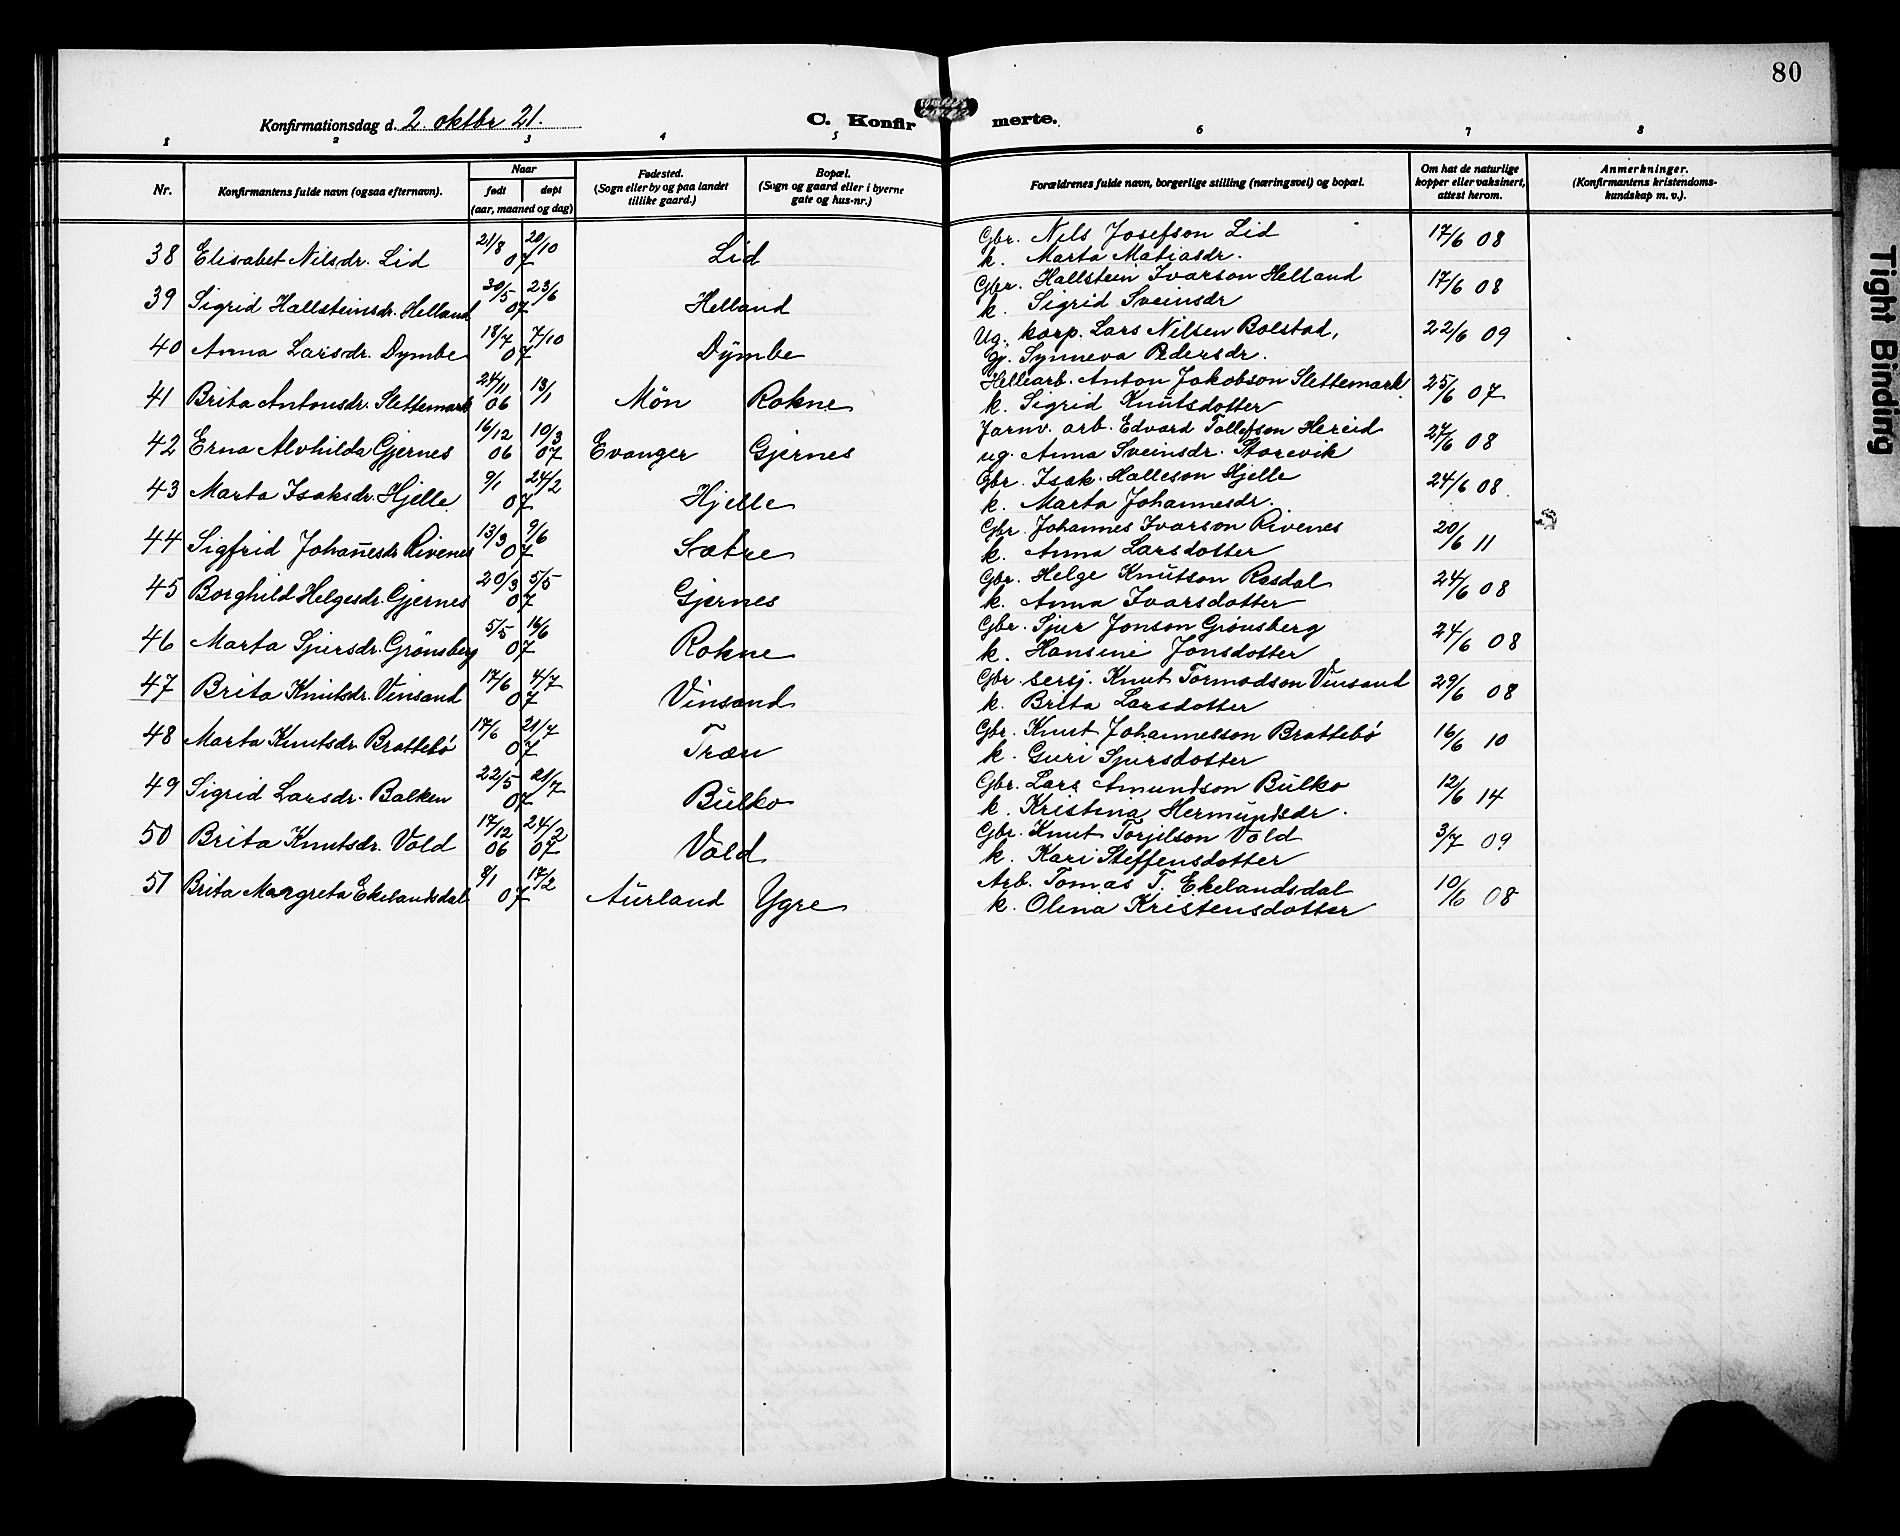 80
Konfirmationsdag d. 2. oktbr 21.
C. Konfirmerte.
1 2 3 4 5 6 7 8
Nr. Konfirmantens fulde navn (ogsaa efternavn). Naar født døpt (aar, maaned og dag) Fødested. (Sogn eller by og paa landet tillike gaard.) Bopæl. (Sogn og gaard eller i byerne gate og hus-nr.) Forældrenes fulde navn, borgerlige stilling (næringsvei) og bopæl. Om hat de naturlige kopper eller vaksinert, attest herom. Anmerkninger. (Konfirmantens kristendoms-kundskap m. v.).
38 Elisabet Nilsdr. Lid 21/8 20/10 07 Lid Gbr. Nils Josefson Lid 17/6 08
k. Marta Matiasdr.
39 Sigrid Hallsteinsdr. Helland 30/5 23/6 07 Helland Gbr. Hallstein Ivarson Helland 17/6 08
k. Sigrid Sveinsdr
40 Anna Larsdr. Dymbe 18/7 7/10 07 Dymbe Ug. korp. Lars Nilsen Bolstad, 22/6 09
Gj. Synneva Pedersdr.
41 Brita Antonsdr. Slettemark 24/11 06 13/1 Møn Rokne Helliarb. Anton Jakobson Slettemark 25/6 07
k. Sigrid Knutsdotter
42 Erna Alvhilda Gjernes 16/12 06 10/3 07 Evanger Gjernes Jarnv. arb. Edvard Tollefson Hereid 24/6 08
ug. Anna Sveinsdr. Storevik
43 Marta Isaksdr. Hjelle 9/1 24/2 07 Hjelle Gbr. Isak Halleson Hjelle 24/6 08
k. Marta Johannesdr.
44 Sigfrid Johan̄esdr Rivenes 13/3 9/6 07 Sætre Gbr. Johannes Ivarson Rivenes 20/6 11
k. Anna Larsdotter
45 Borghild Helgesdr. Gjernes 20/3 5/5 07 Gjernes Gbr. Helge Knutson Rasdal 24/6 08
k. Anna Ivarsdotter
46 Marta Sjursdr. Grønsberg 5/5 16/6 07 Rokne Gbr. Sjur Jonson Grønsberg 24/6 08
k. Hansine Jonsdotter
47 Brita Knutsdr. Vinsand 17/6 4/7 07 Vinsand Gbr sersj. Knut Tormodson Vinsand 29/6 08
k. Brita Larsdotter
48 Marta Knutsdr. Brattebø 17/6 21/7 07 Træn Gbr. Knut Johannesson Brattebø 16/6 10
k. Guri Sjursdotter
49 Sigrid Larsdr. Balken 22/5 21/7 07 Bulko Gbr. Lars Amundson Bulko 12/6 14
k. Kristina Hermundsdr.
50 Brita Knutsdr. Vold 17/12 06 24/2 07 Vold Gbr. Knut Torjilson Vold 3/7 09
k. Kari Steffensdotter
51 Brita Margreta Ekelandsdal 8/1 17/2 07 Aurland Ygre Arb. Tomas T. Ekelandsdal 10/6 08
k. Olina Kristensdotter
Tight Binding